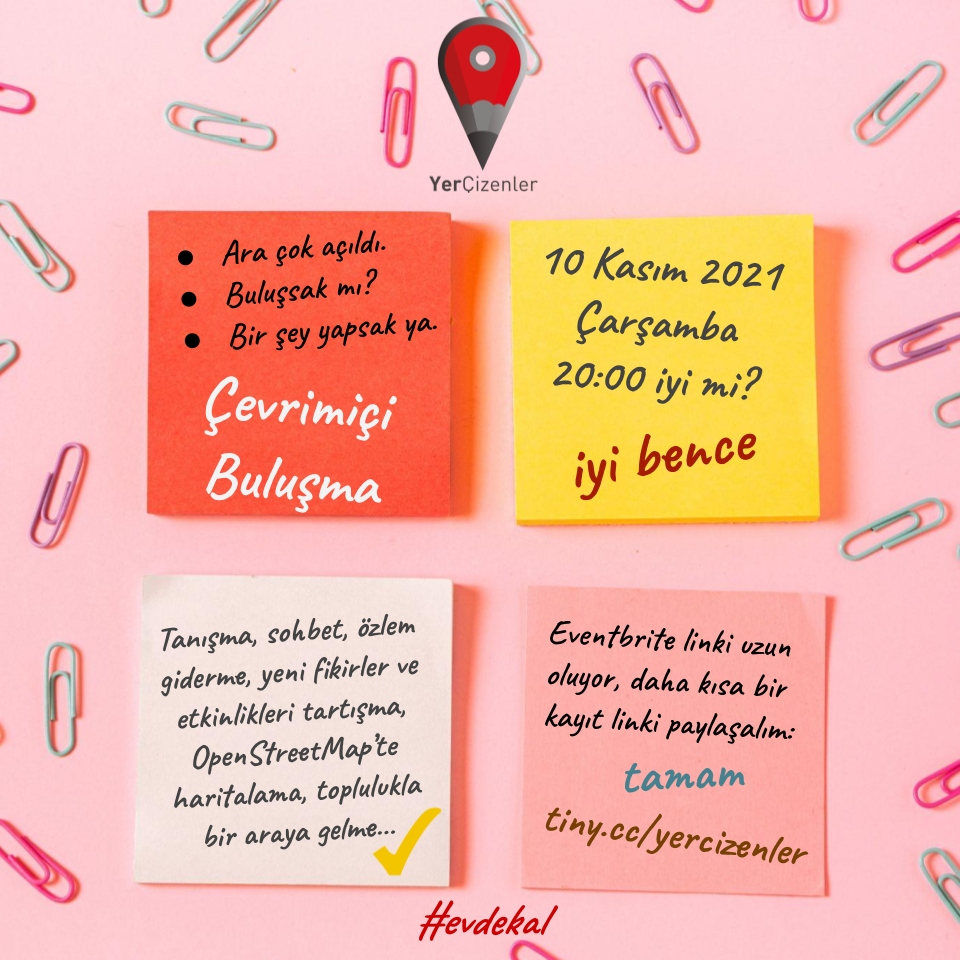 YerÇizenler
Ara çok açıldı.
Buluşsak mı?
Bir şey yapsak ya.
Çevrimiçi
Buluşma
10 Kasım 2021
Çarşamba
20:00 iyi mi?
iyi bence
Tanışma, sohbet, özlem
giderme, yeni fikirler ve
etkinlikleri tartışma,
OpenStreetMap'te
haritalama, toplulukla
bir araya gelme...
Eventbrite linki uzun
oluyor, daha kısa bir
kayıt linki paylaşalım:
tamam
tiny.cc/yercizenler
#evdekal